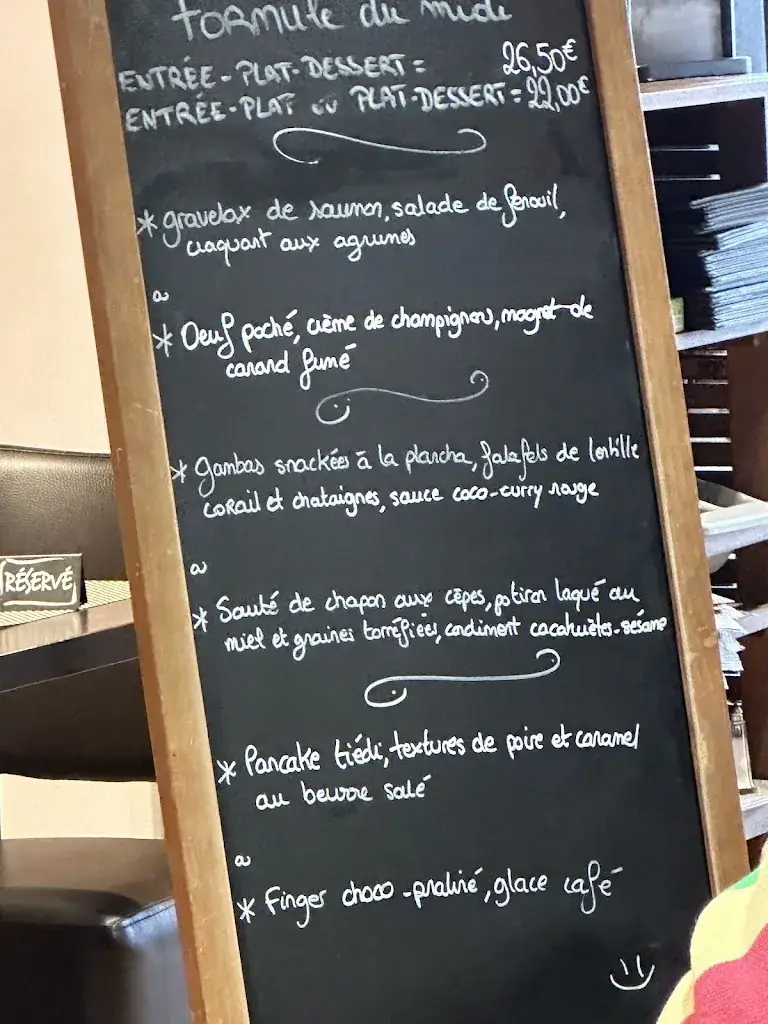 formule du midi
ENTRÉE-PLAT-DESSERT = 26,50€
ENTRÉE-PLAT ou PLAT-DESSERT = 22,00€
* gravelax de saumon, salade de fenouil,
craquant aux agrumes
ou
* Oeuf poché, crème de champignons, magret de
canard fumé
* Gambas snackées à la plancha, falafels de lentille
corail et chataignes, sauce coco-curry rouge
ou
* Sauté de chapon aux cèpes, potiron laqué au
miel et graines torréfiées, condiment cacahuètes-sésame
* Pancake tiédi, textures de poire et caramel
au beurre salé
ou
* Finger choco-praliné, glace café
RÉSERVÉ